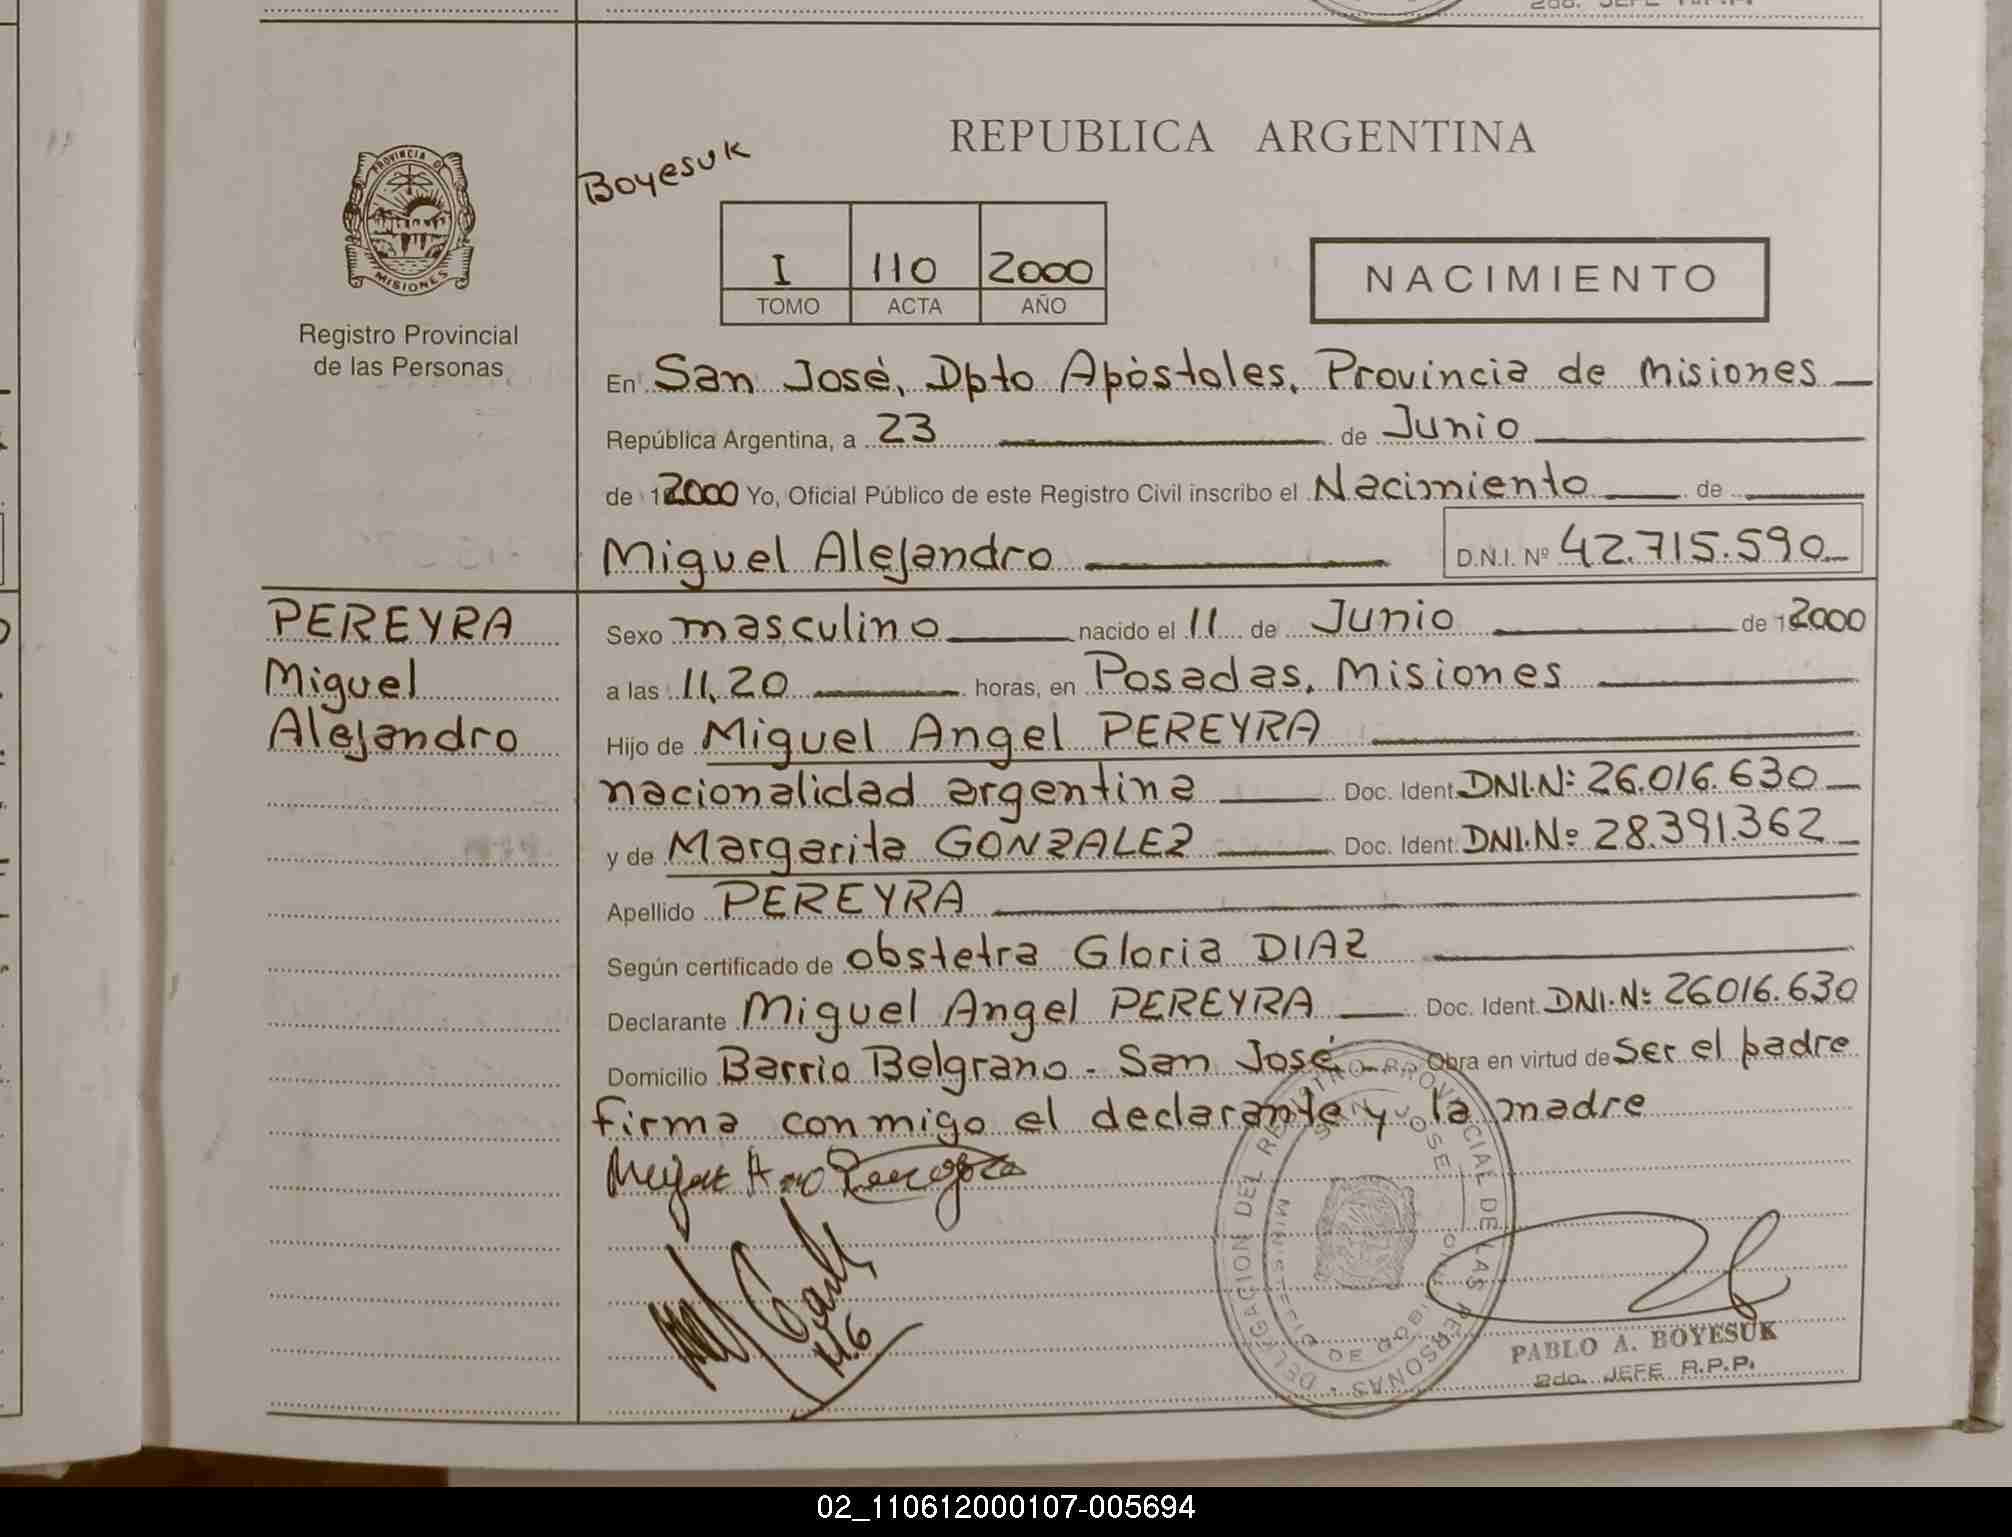 2do. JEFE R.P.P.
REPUBLICA ARGENTINA
Boyesuk
PROVINCIA DE
MISIONES
I 110 2000
TOMO ACTA AÑO
NACIMIENTO
Registro Provincial
de las Personas
En San José, Dpto Apóstoles, Provincia de Misiones
República Argentina, a 23 de Junio
de 12000 Yo, Oficial Público de este Registro Civil inscribo el Nacimiento de
Miguel Alejandro D.N.I. Nº 42.715.590
PEREYRA
Miguel
Alejandro
Sexo masculino nacido el 11 de Junio de 12000
a las 11,20 horas, en Posadas, Misiones
Hijo de Miguel Angel PEREYRA
nacionalidad argentina Doc. Ident. DNI.Nº 26.016.630
y de Margarita GONZALEZ Doc. Ident. DNI.Nº 28.391.362
Apellido PEREYRA
Según certificado de obstetra Gloria DIAZ
Declarante Miguel Angel PEREYRA Doc. Ident. DNI.Nº 26016.630
Domicilio Barrio Belgrano - San José - Obra en virtud de ser el padre
firma conmigo el declarante y la madre
DELEGACION DEL REGISTRO PROVINCIAL DE LAS PERSONAS
SAN JOSE
MINISTERIO DE GOBIERNO
PABLO A. BOYESUK
2do. JEFE R.P.P.
02_110612000107-005694